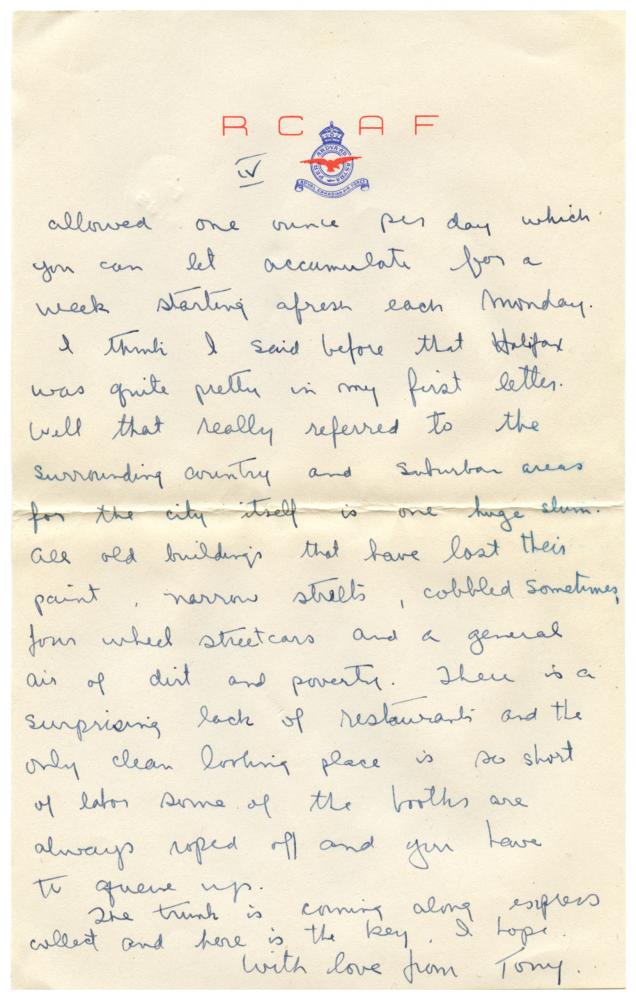 R C A F
IV
PER ARDUA AD ASTRA
ROYAL CANADIAN AIR FORCE
allowed one ounce per day which
you can let accumulate for a
week starting afresh each Monday.
I think I said before that Halifax
was quite pretty in my first letter.
Well that really referred to the
surrounding country and suburban areas
for the city itself is one huge slum.
All old buildings that have lost their
paint, narrow streets, cobbled sometimes,
four wheel streetcars and a general
air of dirt and poverty. There is a
surprising lack of restaurants and the
only clean looking place is so short
of labor some of the booths are
always roped off and you have
to queue up.
The trunk is coming along express
collect and here is the key, I hope.
With love from Tony.